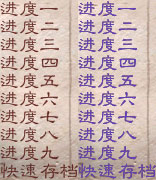 进度一 进度一
进度二 进度二
进度三 进度三
进度四 进度四
进度五 进度五
进度六 进度六
进度七 进度七
进度八 进度八
进度九 进度九
快速存档 快速存档